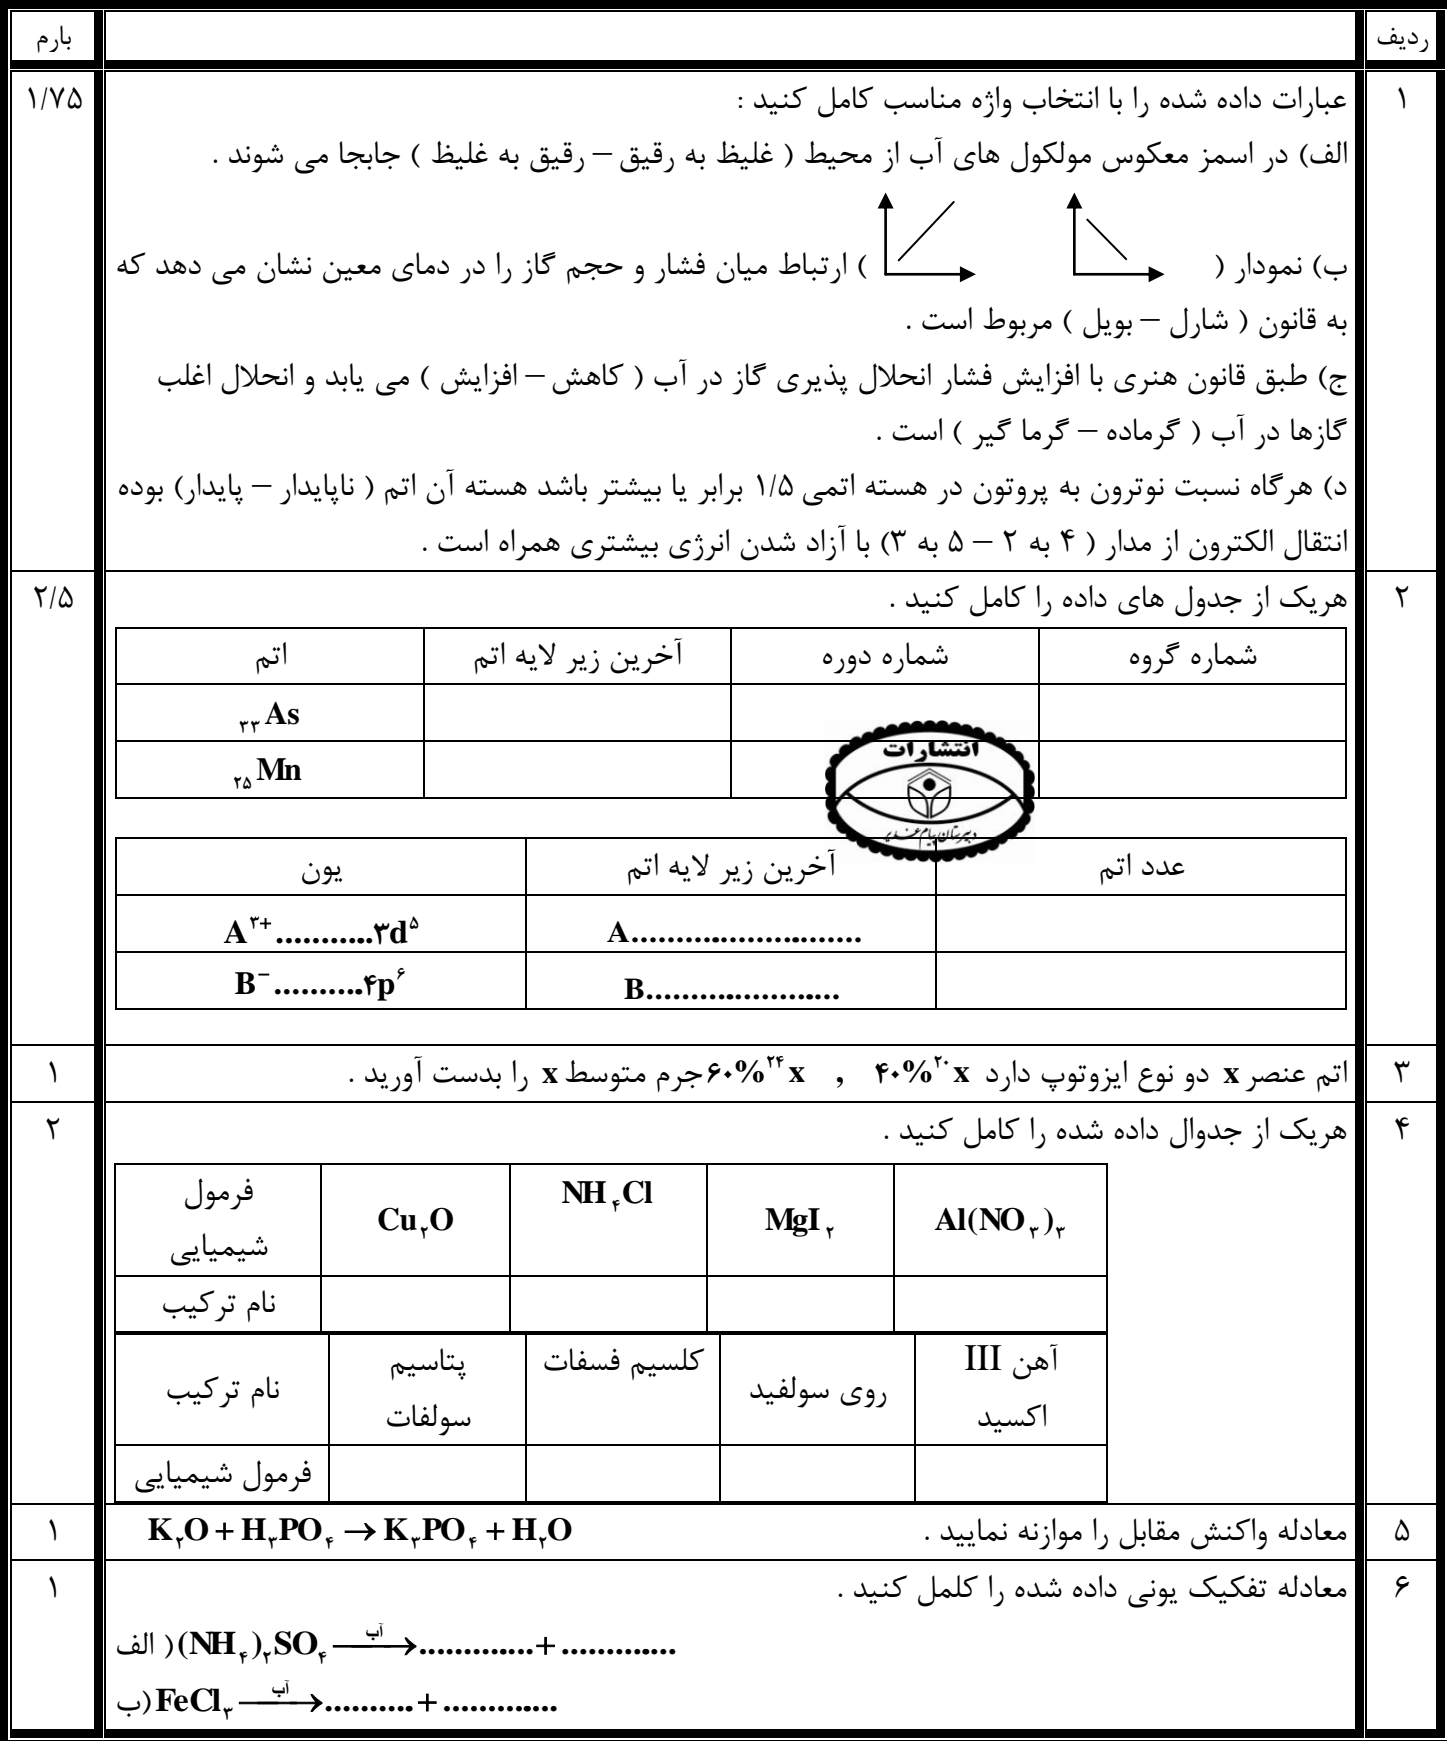 ردیف بارم
۱ عبارات داده شده را با انتخاب واژه مناسب کامل کنید : ۱/۷۵
الف) در اسمز معکوس مولکول های آب از محیط ( غلیظ به رقیق – رقیق به غلیظ ) جابجا می شوند .
ب) نمودار ( ) ارتباط میان فشار و حجم گاز را در دمای معین نشان می دهد که
به قانون ( شارل – بویل ) مربوط است .
ج) طبق قانون هنری با افزایش فشار انحلال پذیری گاز در آب ( کاهش – افزایش ) می یابد و انحلال اغلب
گازها در آب ( گرماده – گرما گیر ) است .
د) هرگاه نسبت نوترون به پروتون در هسته اتمی ۱/۵ برابر یا بیشتر باشد هسته آن اتم ( ناپایدار – پایدار) بوده
انتقال الکترون از مدار ( ۴ به ۲ – ۵ به ۳) با آزاد شدن انرژی بیشتری همراه است .
۲ هریک از جدول های داده را کامل کنید . ۲/۵
شماره گروه شماره دوره آخرین زیر لایه اتم اتم
₃₃As
₂₅Mn
انتشارات
دبیرستان پیام غدیر
عدد اتم آخرین زیر لایه اتم یون
A............................ A³⁺...........۳d⁵
B........................ B⁻..........۴p⁶
۳ اتم عنصر x دو نوع ایزوتوپ دارد ۴۰%²⁰x , ۶۰%²⁴x جرم متوسط x را بدست آورید . ۱
۴ هریک از جدوال داده شده را کامل کنید . ۲
فرمول شیمیایی Cu₂O NH₄Cl MgI₂ Al(NO₃)₃
نام ترکیب
نام ترکیب پتاسیم سولفات کلسیم فسفات روی سولفید آهن III اکسید
فرمول شیمیایی
۵ معادله واکنش مقابل را موازنه نمایید . K₂O + H₃PO₄ → K₃PO₄ + H₂O ۱
۶ معادله تفکیک یونی داده شده را کلمل کنید . ۱
الف ) (NH₄)₂SO₄ —آب→ ............. + .............
ب) FeCl₃ —آب→ .......... + .............